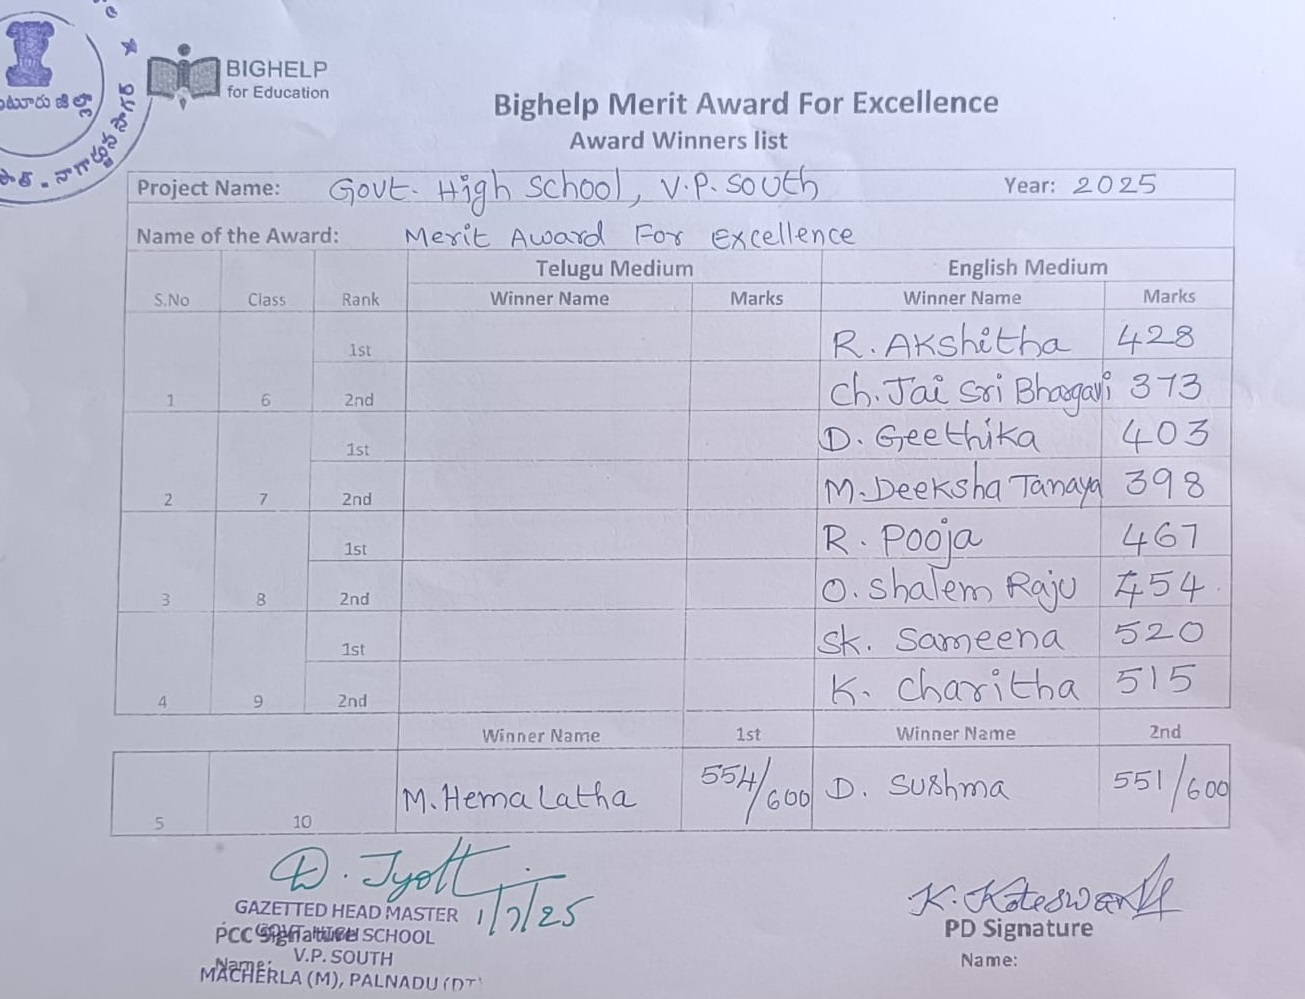 BIGHELP
for Education
Bighelp Merit Award For Excellence
Award Winners list
Project Name: Govt. High School, V.P. South Year: 2025
Name of the Award: Merit Award For Excellence
Telugu Medium English Medium
S.No Class Rank Winner Name Marks Winner Name Marks
1st R. Akshitha 428
1 6 2nd Ch. Jai Sri Bhargavi 373
1st D. Geethika 403
2 7 2nd M. Deeksha Tanaya 398
1st R. Pooja 467
3 8 2nd O. Shalem Raju 454
1st Sk. Sameena 520
4 9 2nd K. Charitha 515
Winner Name 1st Winner Name 2nd
5 10 M. Hema Latha 554/600 D. Sushma 551/600
D. Jyoti
1/7/25
GAZETTED HEAD MASTER
PCC Signature SCHOOL
Name: V.P. SOUTH
MACHERLA (M), PALNADU (DT)
PD Signature
Name: